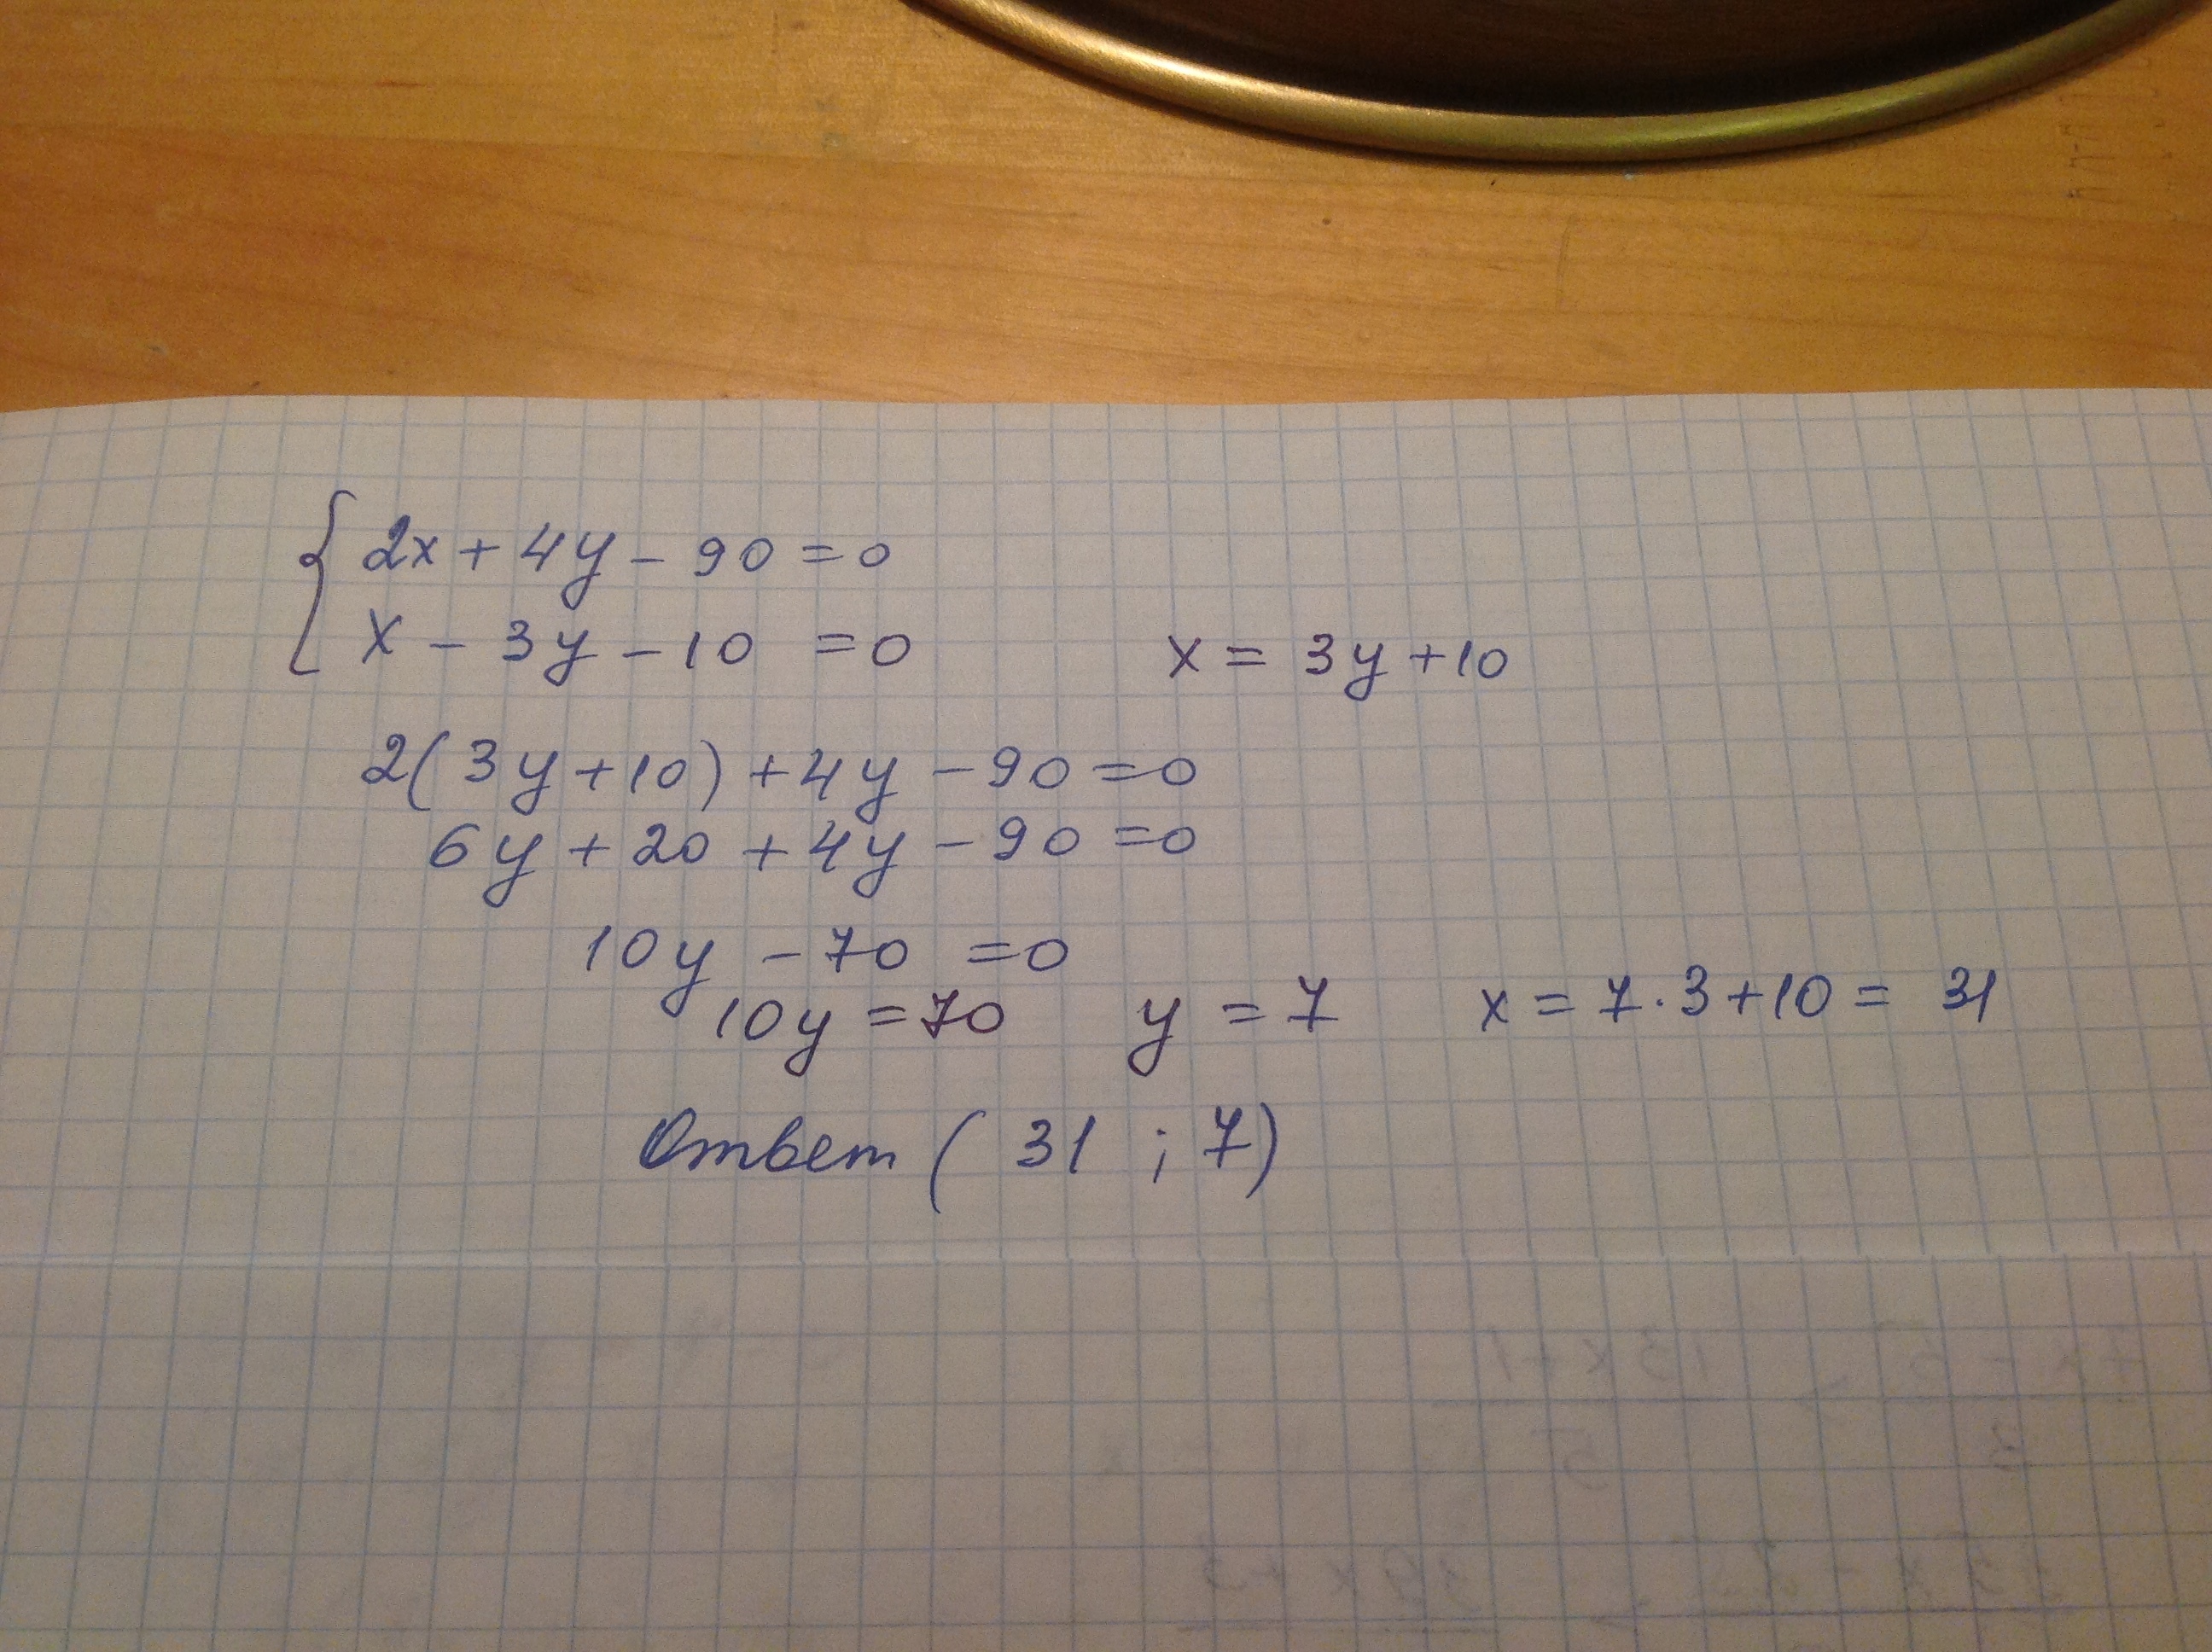 2x + 4y - 90 = 0
x - 3y - 10 = 0 x = 3y + 10
2(3y + 10) + 4y - 90 = 0
6y + 20 + 4y - 90 = 0
10y - 70 = 0
10y = 70 y = 7 x = 7 · 3 + 10 = 31
Ответ (31 ; 7)